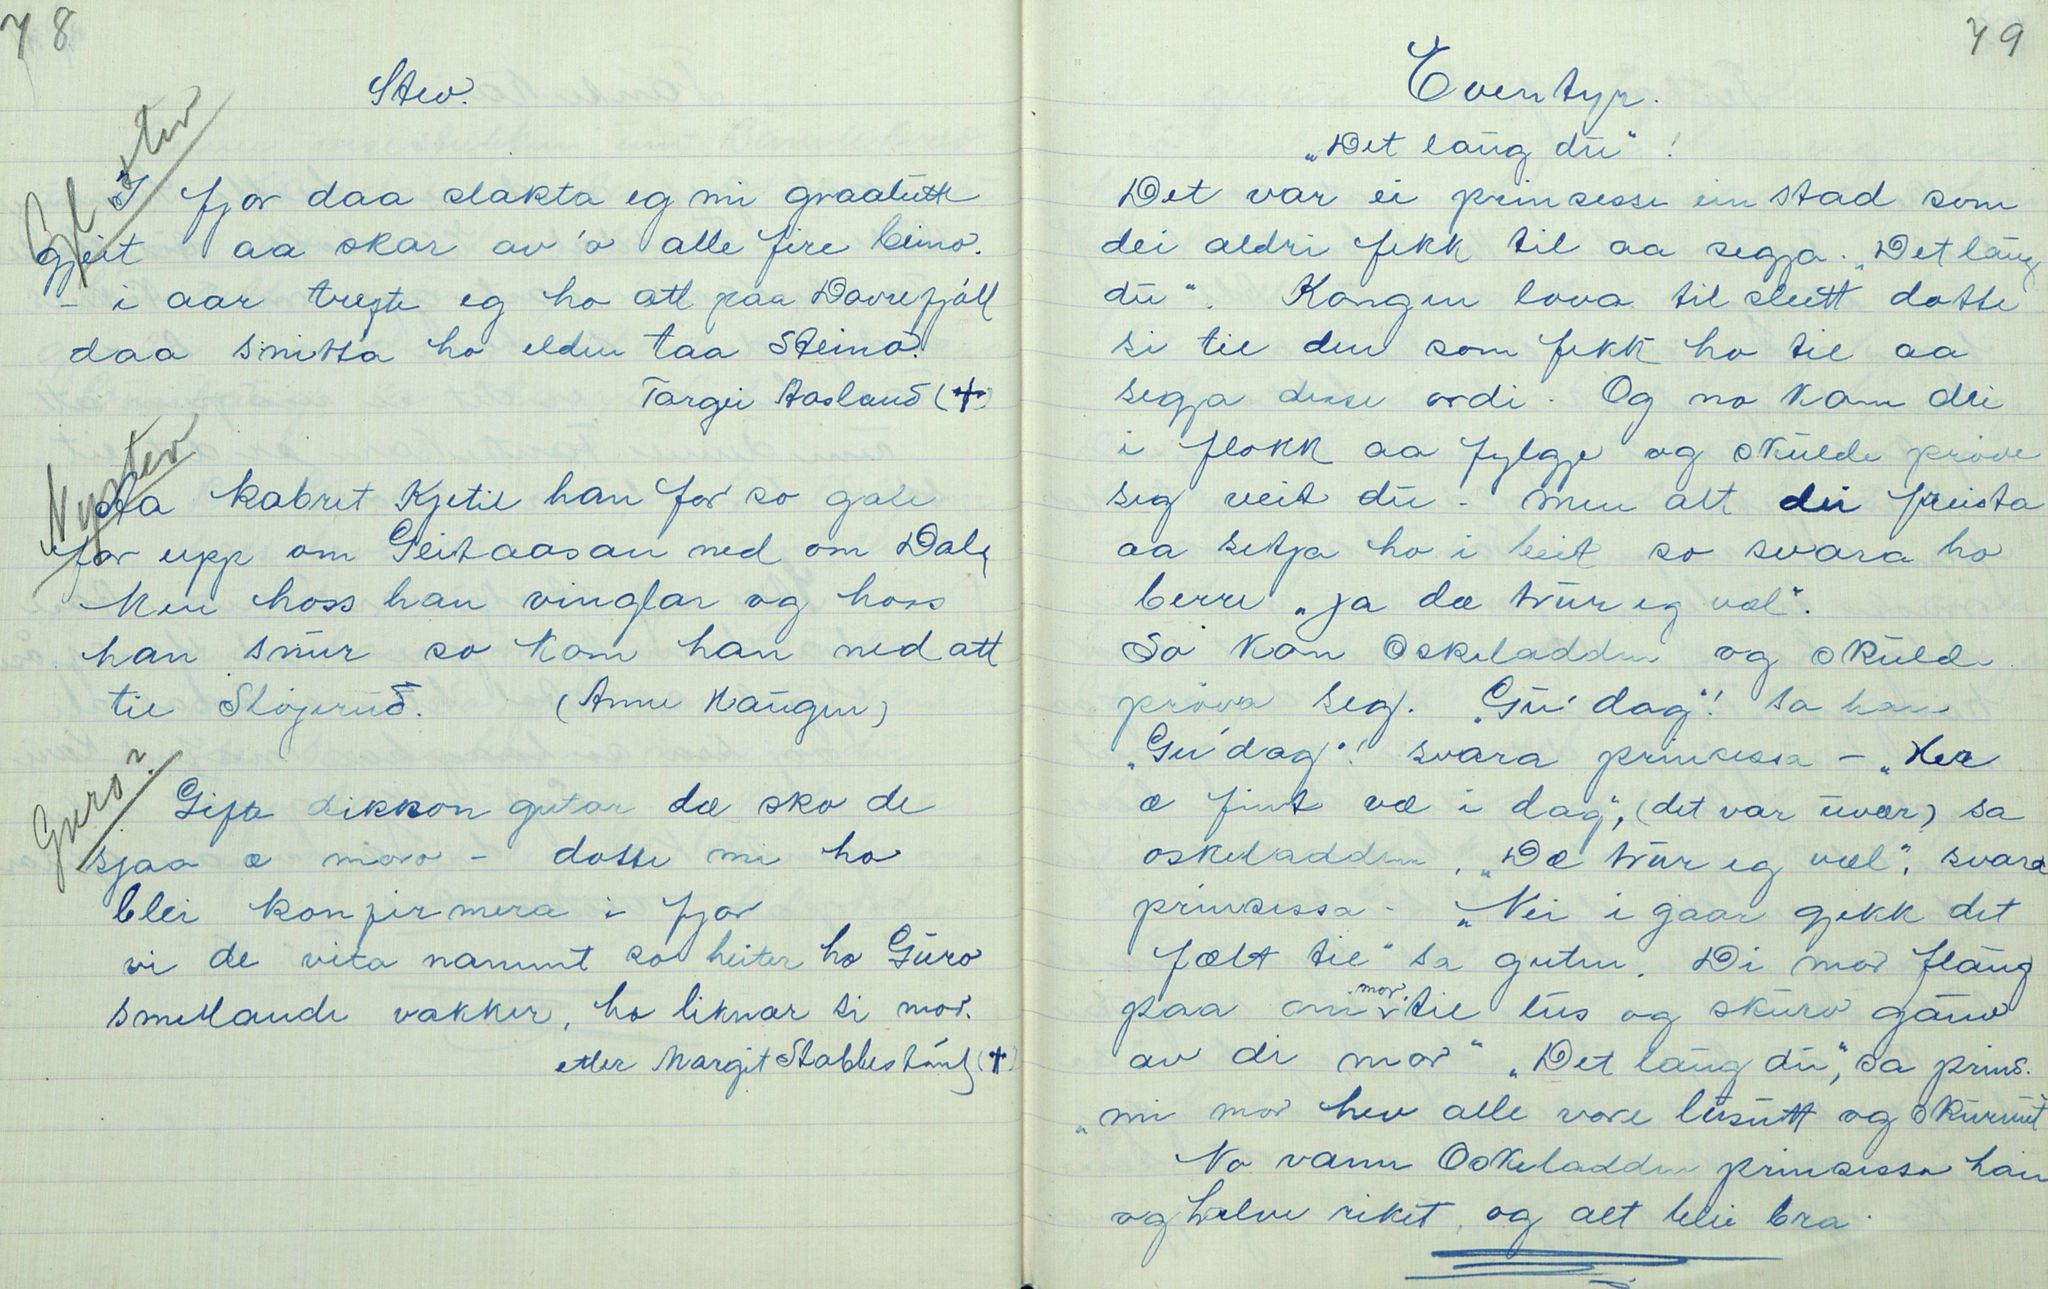 78
Stev.
Gl. stev
I fjor daa slakta eg mi graalutt
gjeit aa skar av 'o alle fire beino.
- i aar trefte eg ho att paa Dovrefjöll
daa snitta ho elden taa Steino.
Targei Aasland (✝)
Nystev
Aa kabret Kjetil han for so gale
for upp om Geitaasan ned om Dale
Men hoss han vinglar og hoss
han snur so kom han ned att
til Slögerud. (Anne Haugen)
Guro?
Gifta dikkon gutar dæ sko de
sjaa æ moro - dotte mi ho
blei konfirmera i fjor
vi de vita namnet so heiter ho Guro
smellande vakker, ho liknar si mor.
etter Margit Stabbestöyl (✝)
79
Eventyr.
"Det laug du"!
Det var ei prinsesse ein stad som
dei aldri fekk til aa segja. "Det laug
du". Kongen lova til slutt dotte
si til den som fekk ho til aa
segja desse ordi. Og no kom dei
i flokk aa fylgje og skulde pröve
seg veit du - men alt dei freista
aa setja ho i beit so svara ho
berre "ja dæ trur eg væl".
So kom Oskeladden og skulde
pröva seg. "Gu' dag"! sa han
"Gu' dag"! svara prinsessa - "Her
æ fint væ i dag", (det var uvær) sa
oskeladden. "Dæ trur eg væl", svara
prinsessa - "Nei i gaar gjekk det
fælt til" sa guten. Di mor flaug
paa mi mor til lus og skuro gauv
av di mor" "Det laug du", sa prins.
"mi mor hev alle vore lusutt og skurut
No vann Oskeladden prinsessa han
og halve riket, og alt blei bra.